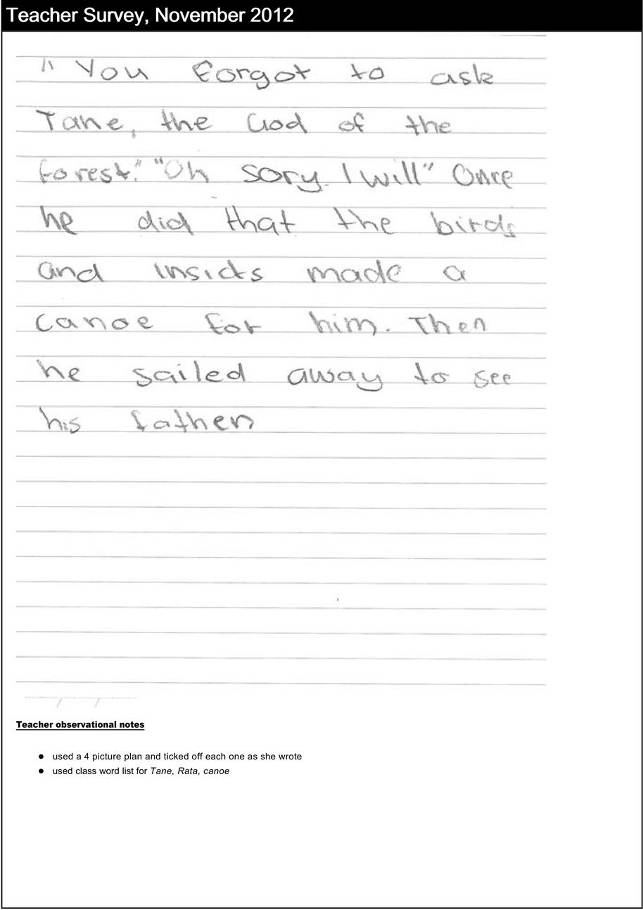 Teacher Survey, November 2012
" You Forgot to ask
Tane, the God of the
forest." "Oh sory. I will" Once
he did that the birds
and insicts made a
canoe for him. Then
he sailed away to see
his father
Teacher observational notes
• used a 4 picture plan and ticked off each one as she wrote
• used class word list for Tane, Rata, canoe